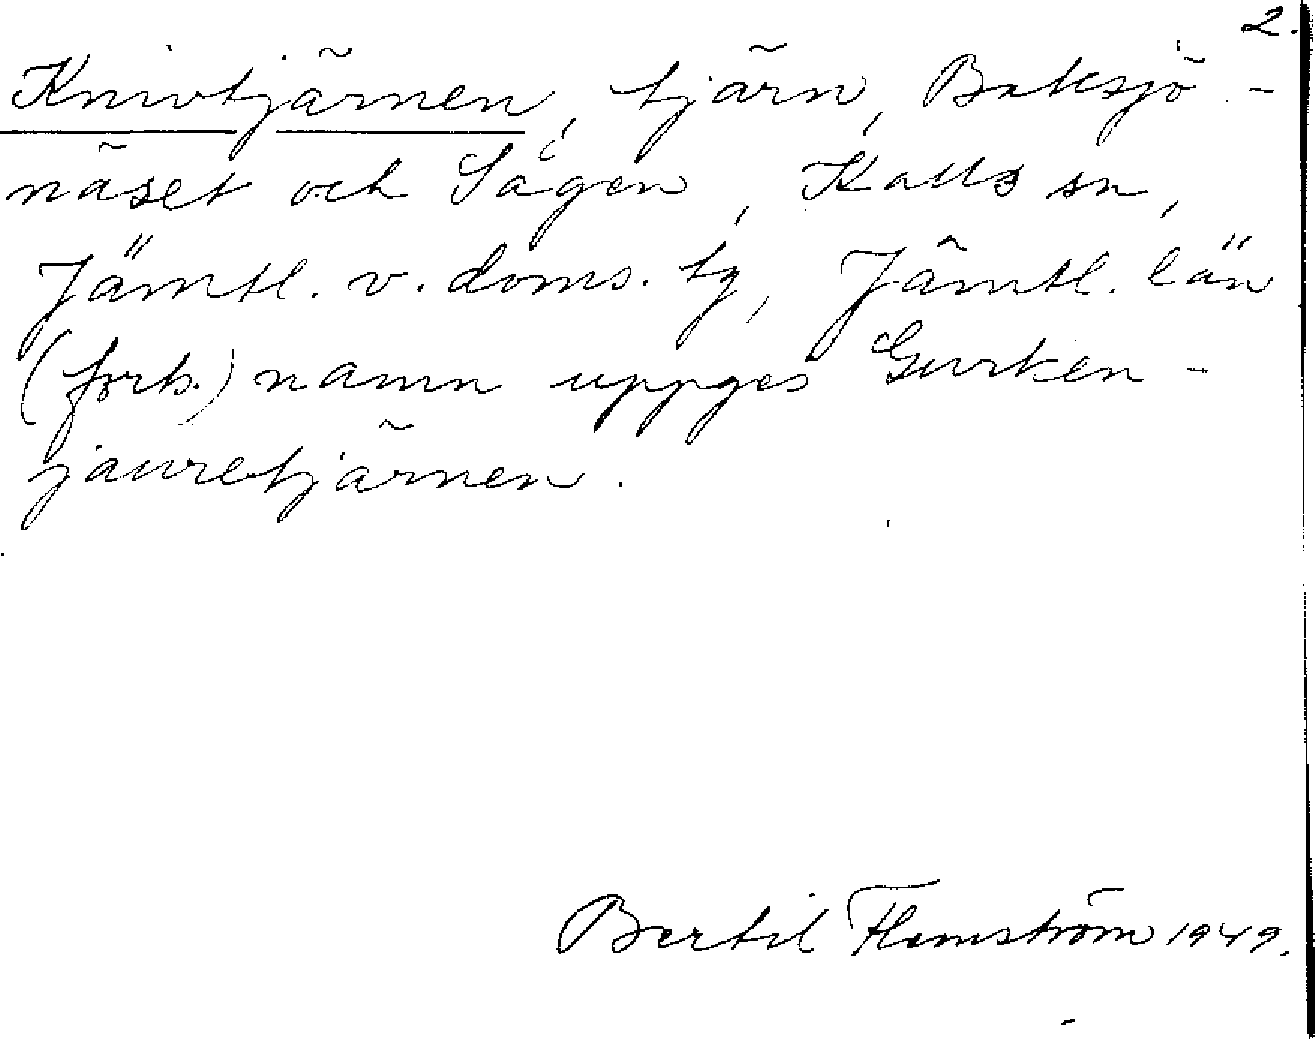 2.
Knivtjärnen, tjärn, Baksjö-
näset och Sågen, Kalls sn,
Jämtl. v. doms. tg, Jämtl. län
(förb.) namn uppges Gurken-
jauretjärnen.
Bertil Flemström 1949.